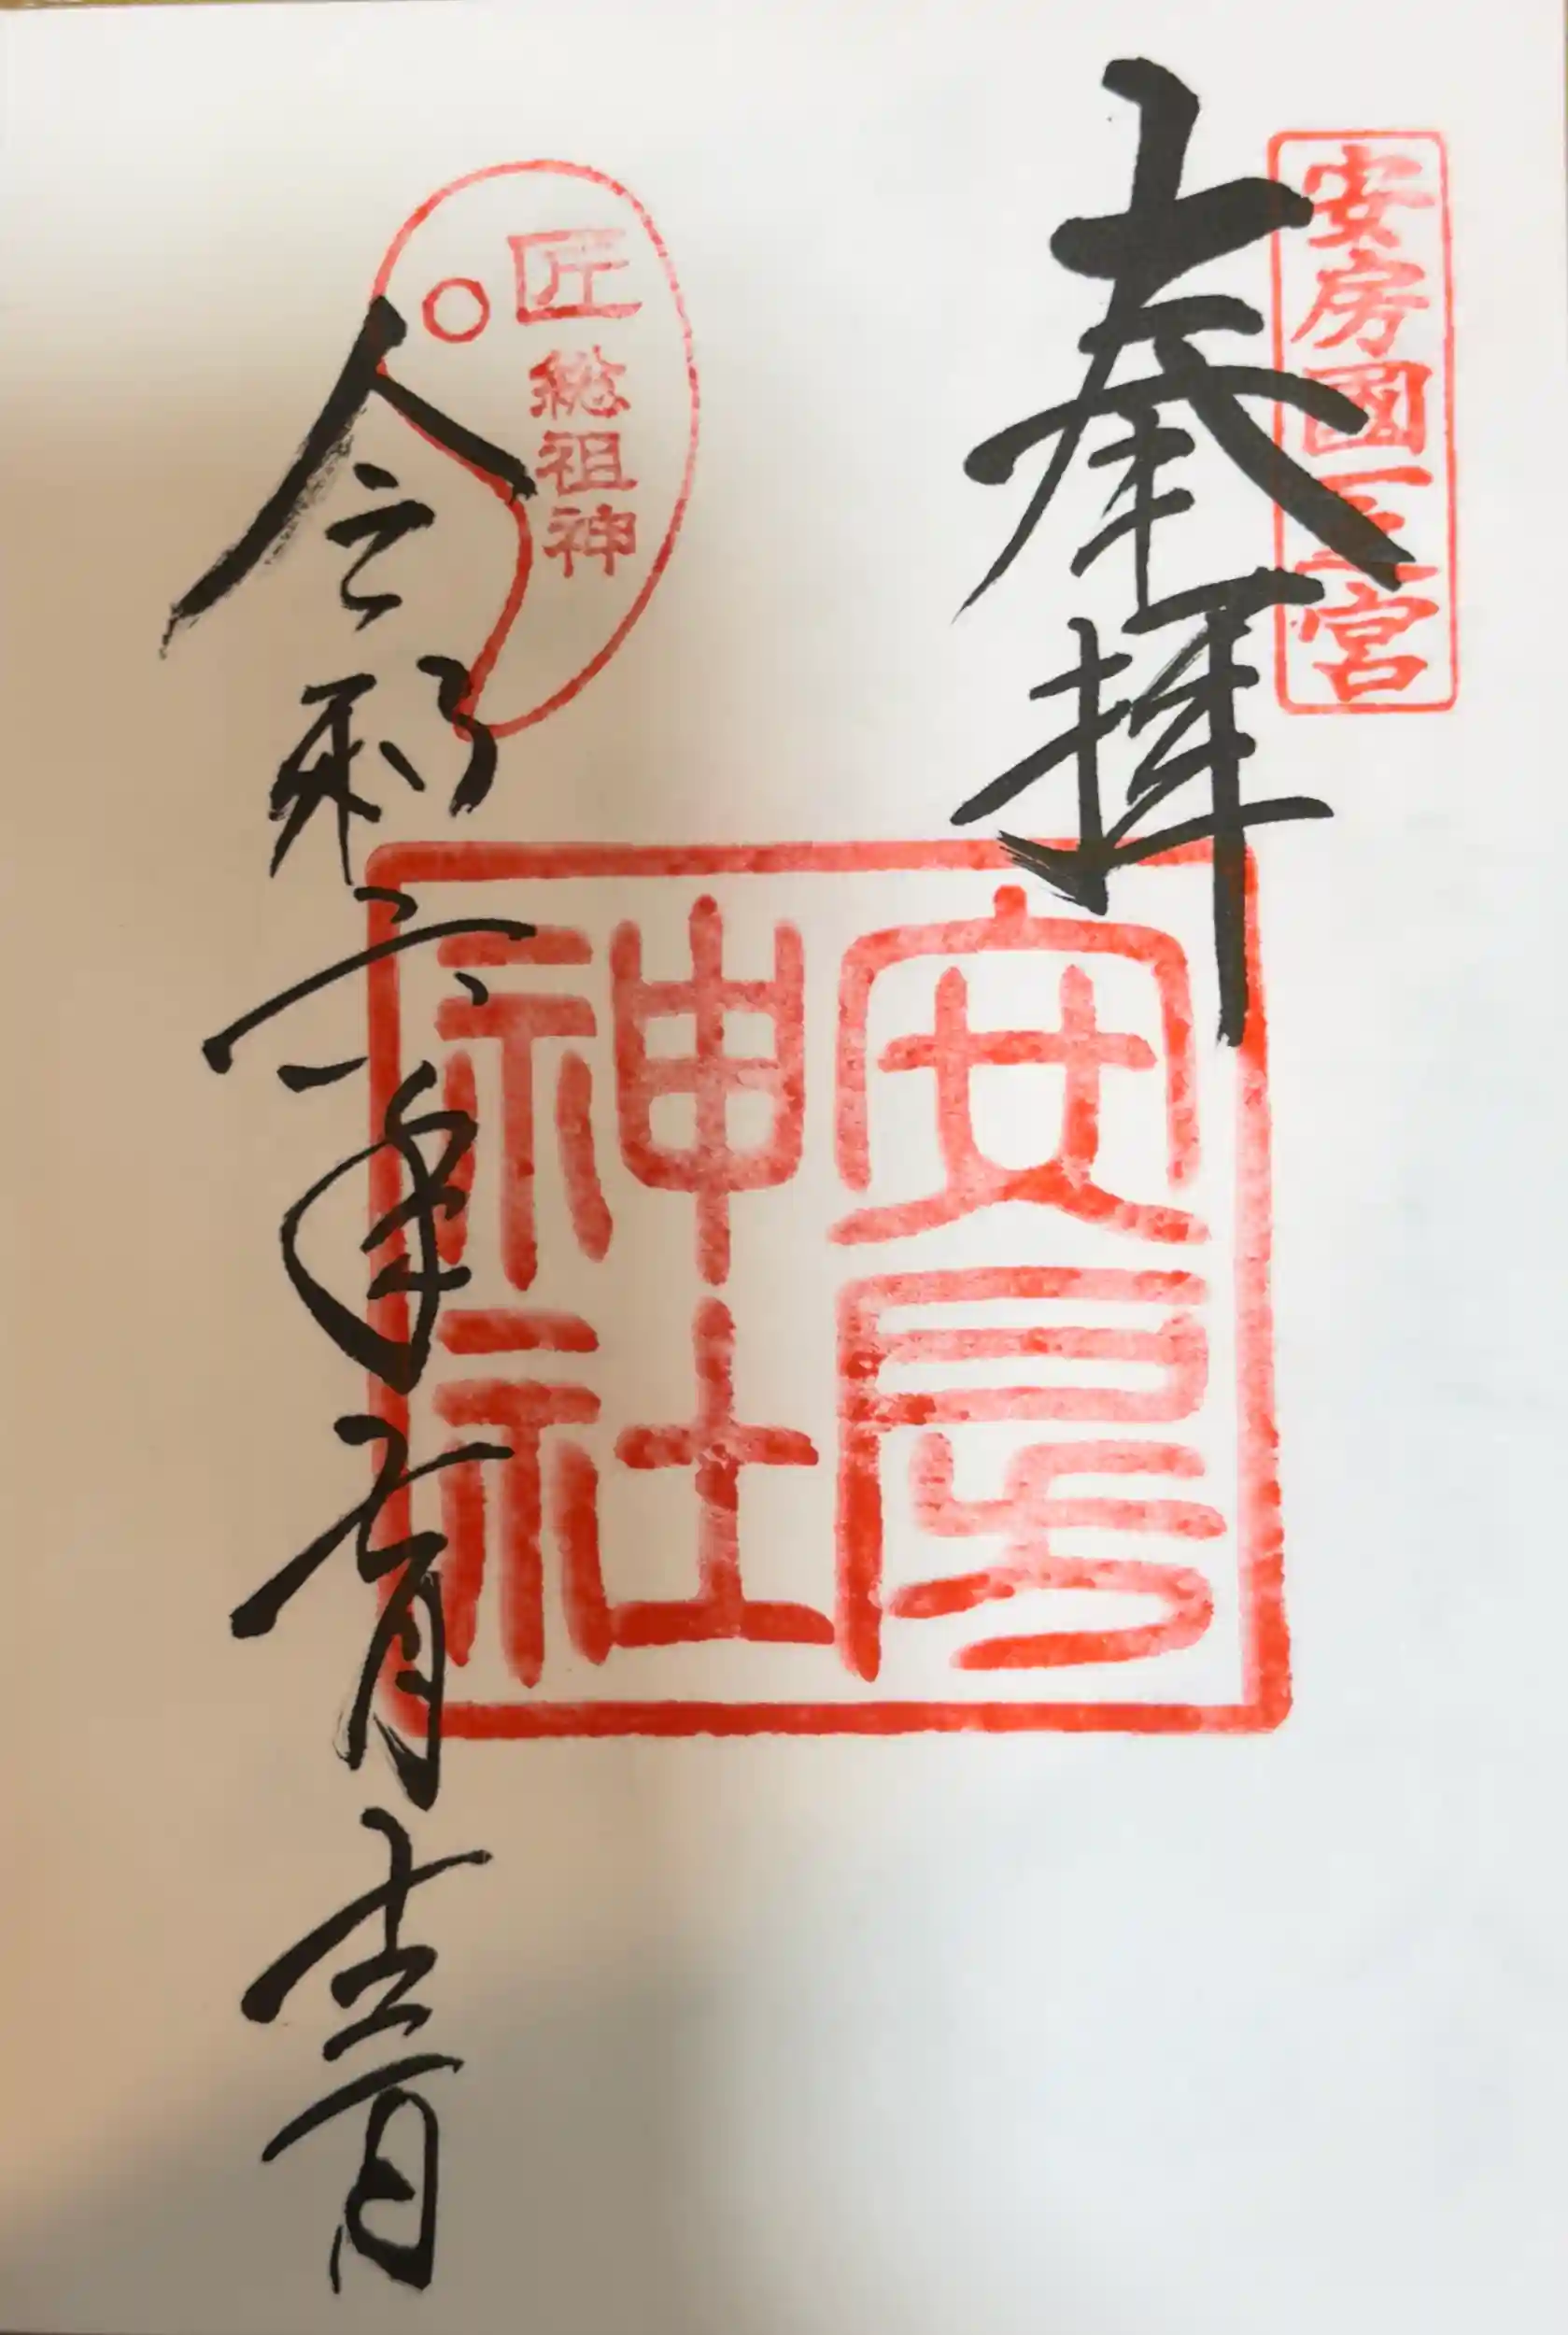 安房國一之宮
奉拝
安房
神社
匠総祖神
令和六年 月 日